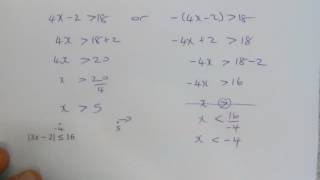 4x-2 >18 or -(4x-2)>18
4x >18+2 -4x+2 > 18
4x > 20 -4x > 18-2
x > 20/4 -4x > 16
x > 5 x < 16/-4
x < -4
-4 5
|3x – 2| ≤ 16